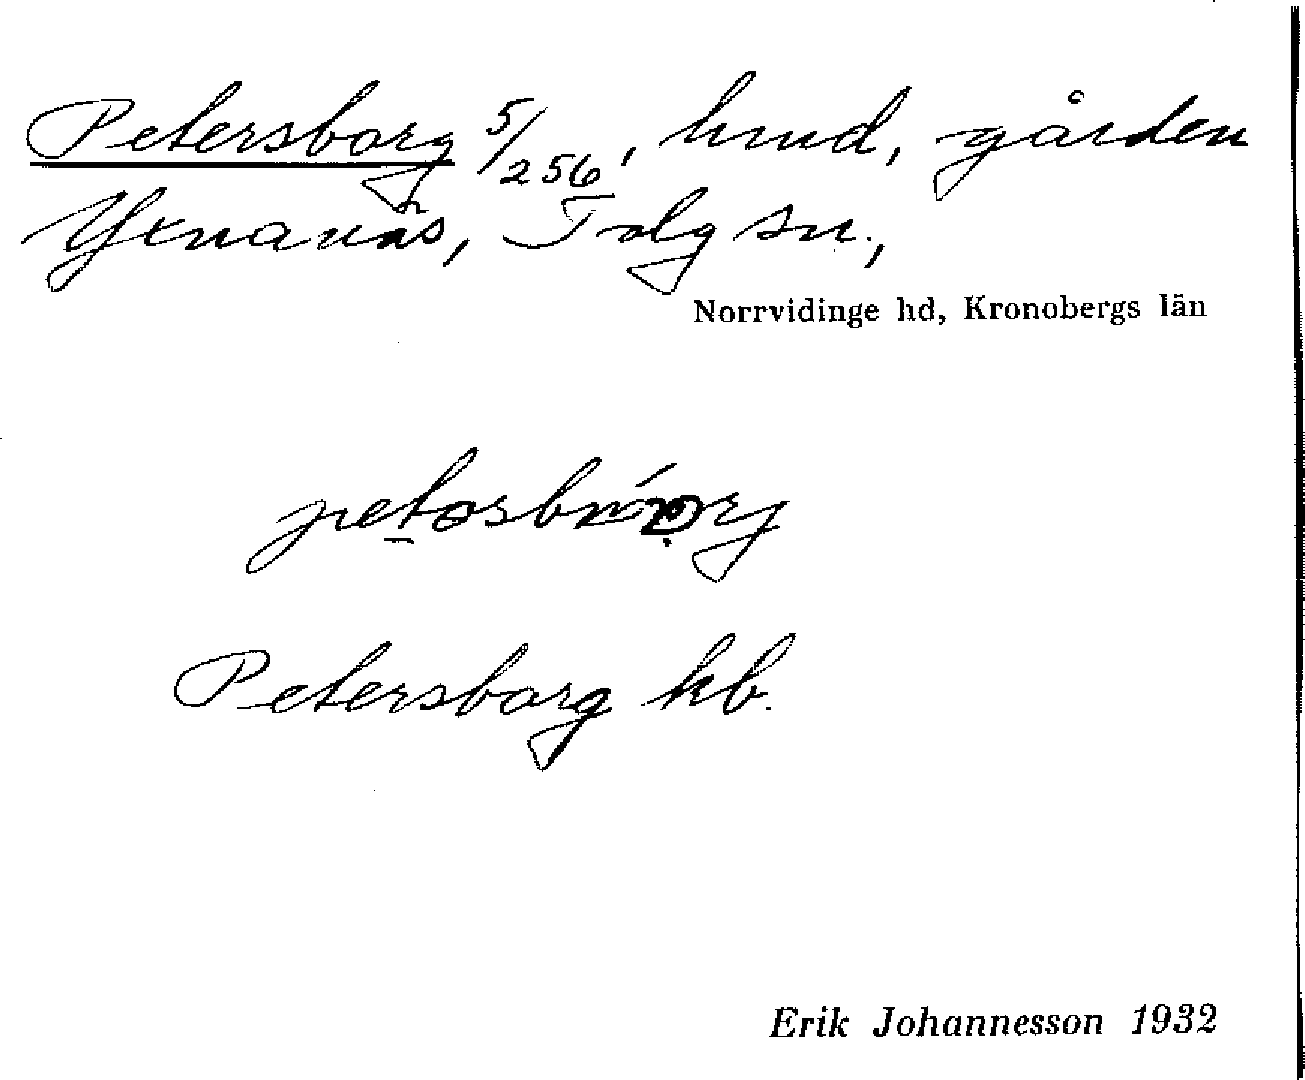 Petersborg 5/256, hmd, gården
Yxnanäs, Tolg sn.,
Norrvidinge hd, Kronobergs län
Petersborg kb.
Erik Johannesson 1932